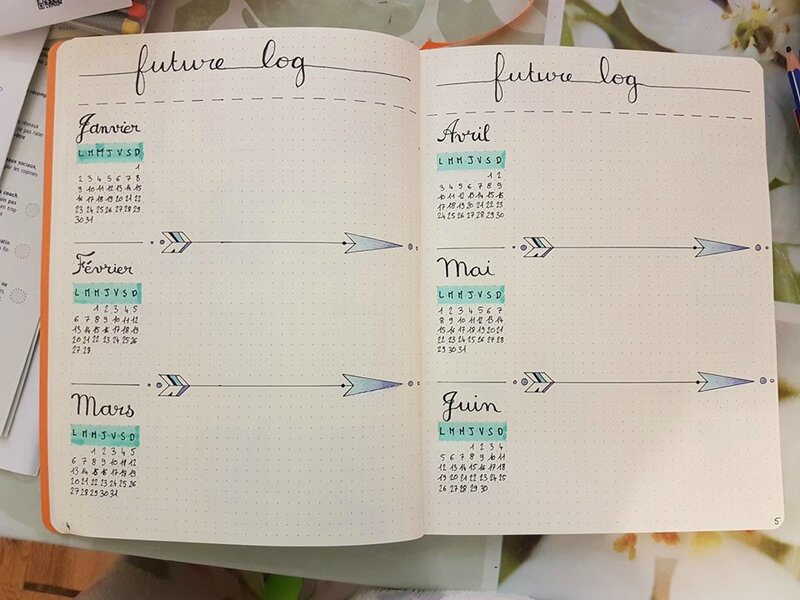 future log
Janvier
L M M J V S D
1
2 3 4 5 6 7 8
9 10 11 12 13 14 15
16 17 18 19 20 21 22
23 24 25 26 27 28 29
30 31
Février
L M M J V S D
1 2 3 4 5
6 7 8 9 10 11 12
13 14 15 16 17 18 19
20 21 22 23 24 25 26
27 28
Mars
L M M J V S D
1 2 3 4 5
6 7 8 9 10 11 12
13 14 15 16 17 18 19
20 21 22 23 24 25 26
27 28 29 30 31
4
future log
Avril
L M M J V S D
1 2
3 4 5 6 7 8 9
10 11 12 13 14 15 16
17 18 19 20 21 22 23
24 25 26 27 28 29 30
Mai
L M M J V S D
1 2 3 4 5 6 7
8 9 10 11 12 13 14
15 16 17 18 19 20 21
22 23 24 25 26 27 28
29 30 31
Juin
L M M J V S D
1 2 3 4
5 6 7 8 9 10 11
12 13 14 15 16 17 18
19 20 21 22 23 24 25
26 27 28 29 30
5
réseaux
de pas rater
sociaux,
les copines
coach
pas
en trop